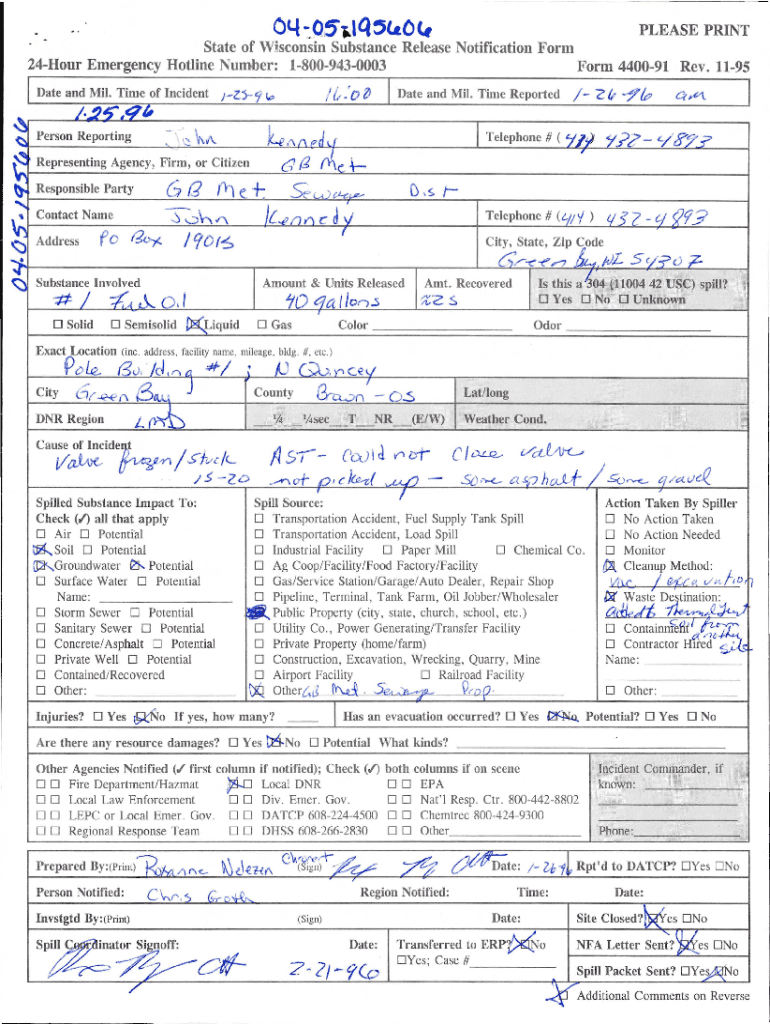 04-05-195606
PLEASE PRINT
State of Wisconsin Substance Release Notification Form
24-Hour Emergency Hotline Number: 1-800-943-0003 Form 4400-91 Rev. 11-95
Date and Mil. Time of Incident 1-25-96 16:00 Date and Mil. Time Reported 1-26-96 am
1.25.96
04-05-195606
Person Reporting John Kennedy Telephone # (414) 432-4893
Representing Agency, Firm, or Citizen GB Met
Responsible Party GB Met. Sewage Dist
Contact Name John Kennedy Telephone # (414) 432-4893
Address PO Box 19015 City, State, Zip Code
Green Bay, WI 54307
Substance Involved Amount & Units Released Amt. Recovered Is this a 304 (11004 42 USC) spill?
#1 Fuel Oil 40 gallons ☐ Yes ☐ No ☐ Unknown
☐ Solid ☐ Semisolid ☒ Liquid ☐ Gas Color Odor
Exact Location (inc. address, facility name, mileage, bldg. #, etc.)
Pole Building #1 ; N Quincey
City Green Bay County Brown - 05 Lat/long
DNR Region LMD ¼ ¼sec T NR (E/W) Weather Cond.
Cause of Incident
Valve frozen / stuck AST - Could not Close valve
15-20 not picked up - some asphalt / some gravel
Spilled Substance Impact To: Spill Source: Action Taken By Spiller
Check (✓) all that apply ☐ Transportation Accident, Fuel Supply Tank Spill ☐ No Action Taken
☐ Air ☐ Potential ☐ Transportation Accident, Load Spill ☐ No Action Needed
☒ Soil ☐ Potential ☐ Industrial Facility ☐ Paper Mill ☐ Chemical Co. ☐ Monitor
☒ Groundwater ☒ Potential ☐ Ag Coop/Facility/Food Factory/Facility ☒ Cleanup Method:
☐ Surface Water ☐ Potential ☐ Gas/Service Station/Garage/Auto Dealer, Repair Shop vac / excavation
Name: ☐ Pipeline, Terminal, Tank Farm, Oil Jobber/Wholesaler ☒ Waste Destination:
☐ Storm Sewer ☐ Potential Public Property (city, state, church, school, etc.) added to Thermal Treat
☐ Sanitary Sewer ☐ Potential ☐ Utility Co., Power Generating/Transfer Facility ☐ Containment soil from
☐ Concrete/Asphalt ☐ Potential ☐ Private Property (home/farm) ☐ Contractor Hired another site
☐ Private Well ☐ Potential ☐ Construction, Excavation, Wrecking, Quarry, Mine Name:
☐ Contained/Recovered ☐ Airport Facility ☐ Railroad Facility
☐ Other: ☒ Other GB Met. Sewage Prop. ☐ Other:
Injuries? ☐ Yes ☒ No If yes, how many? Has an evacuation occurred? ☐ Yes ☒ No Potential? ☐ Yes ☐ No
Are there any resource damages? ☐ Yes ☒ No ☐ Potential What kinds?
Other Agencies Notified (✓ first column if notified); Check (✓) both columns if on scene Incident Commander, if
☐ ☐ Fire Department/Hazmat ☒ ☐ Local DNR ☐ ☐ EPA known:
☐ ☐ Local Law Enforcement ☐ ☐ Div. Emer. Gov. ☐ ☐ Nat'l Resp. Ctr. 800-442-8802
☐ ☐ LEPC or Local Emer. Gov. ☐ ☐ DATCP 608-224-4500 ☐ ☐ Chemtrec 800-424-9300
☐ ☐ Regional Response Team ☐ ☐ DHSS 608-266-2830 ☐ ☐ Other Phone:
Prepared By:(Print) Roxanne (Sign) Date: 1-26-96 Rpt'd to DATCP? ☐Yes ☐No
Person Notified: Chris Region Notified: Time: Date:
Invstgtd By:(Print) (Sign) Date: Site Closed? ☒Yes ☐No
Spill Coordinator Signoff: Date: Transferred to ERP? ☒No NFA Letter Sent? ☒Yes ☐No
2-21-96 ☐Yes; Case # Spill Packet Sent? ☐Yes ☒No
☒ Additional Comments on Reverse